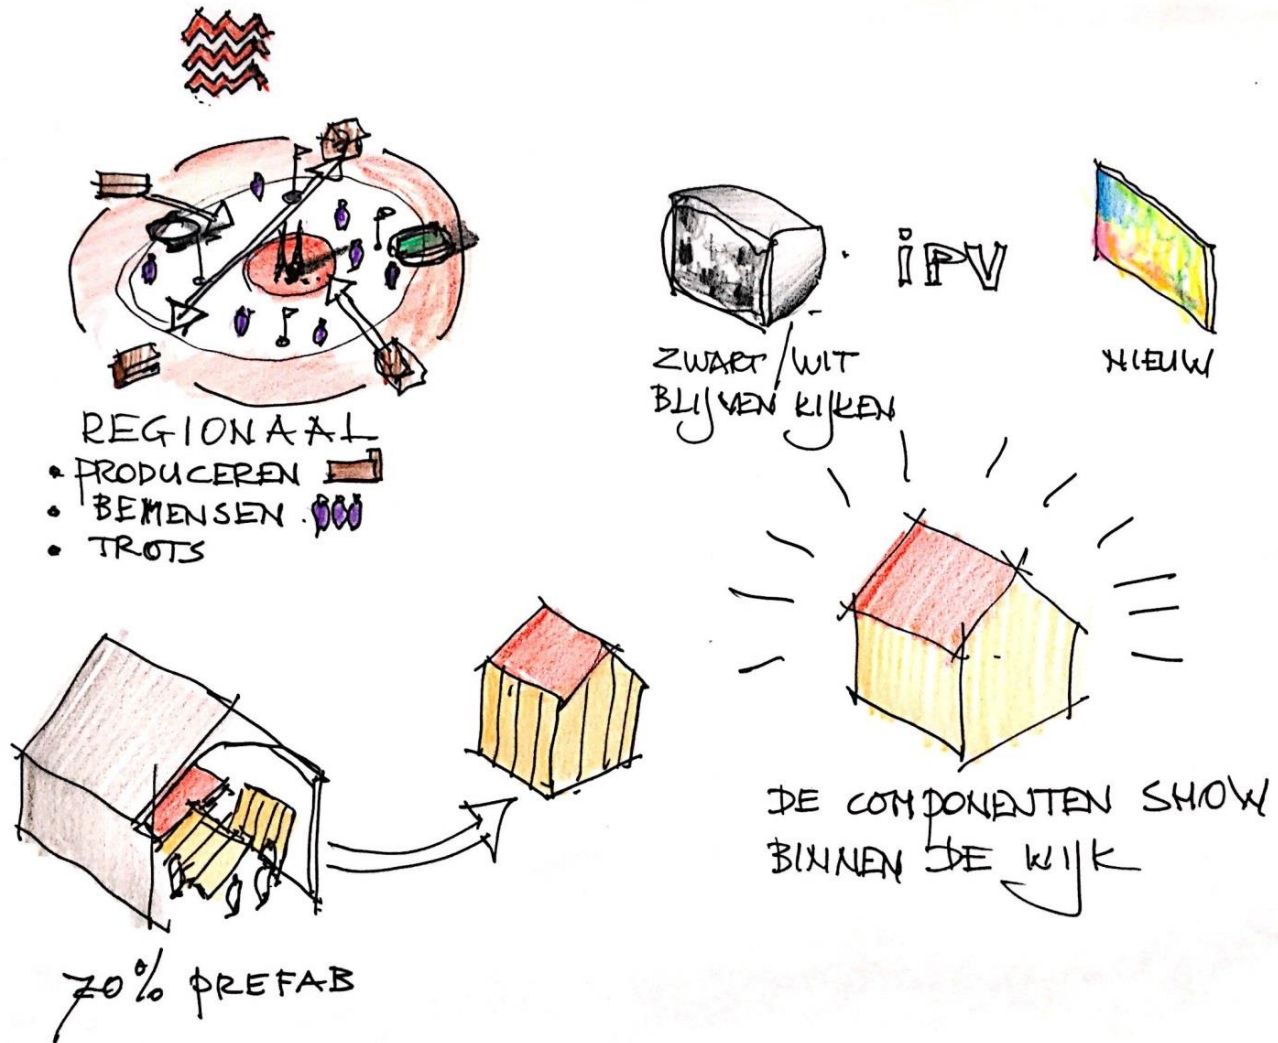 REGIONAAL
• PRODUCEREN
• BEMENSEN
• TROTS
ZWART/WIT
BLIJVEN KIJKEN
iPV
NIEUW
70% PREFAB
DE COMPONENTEN SHOW
BINNEN DE WIJK